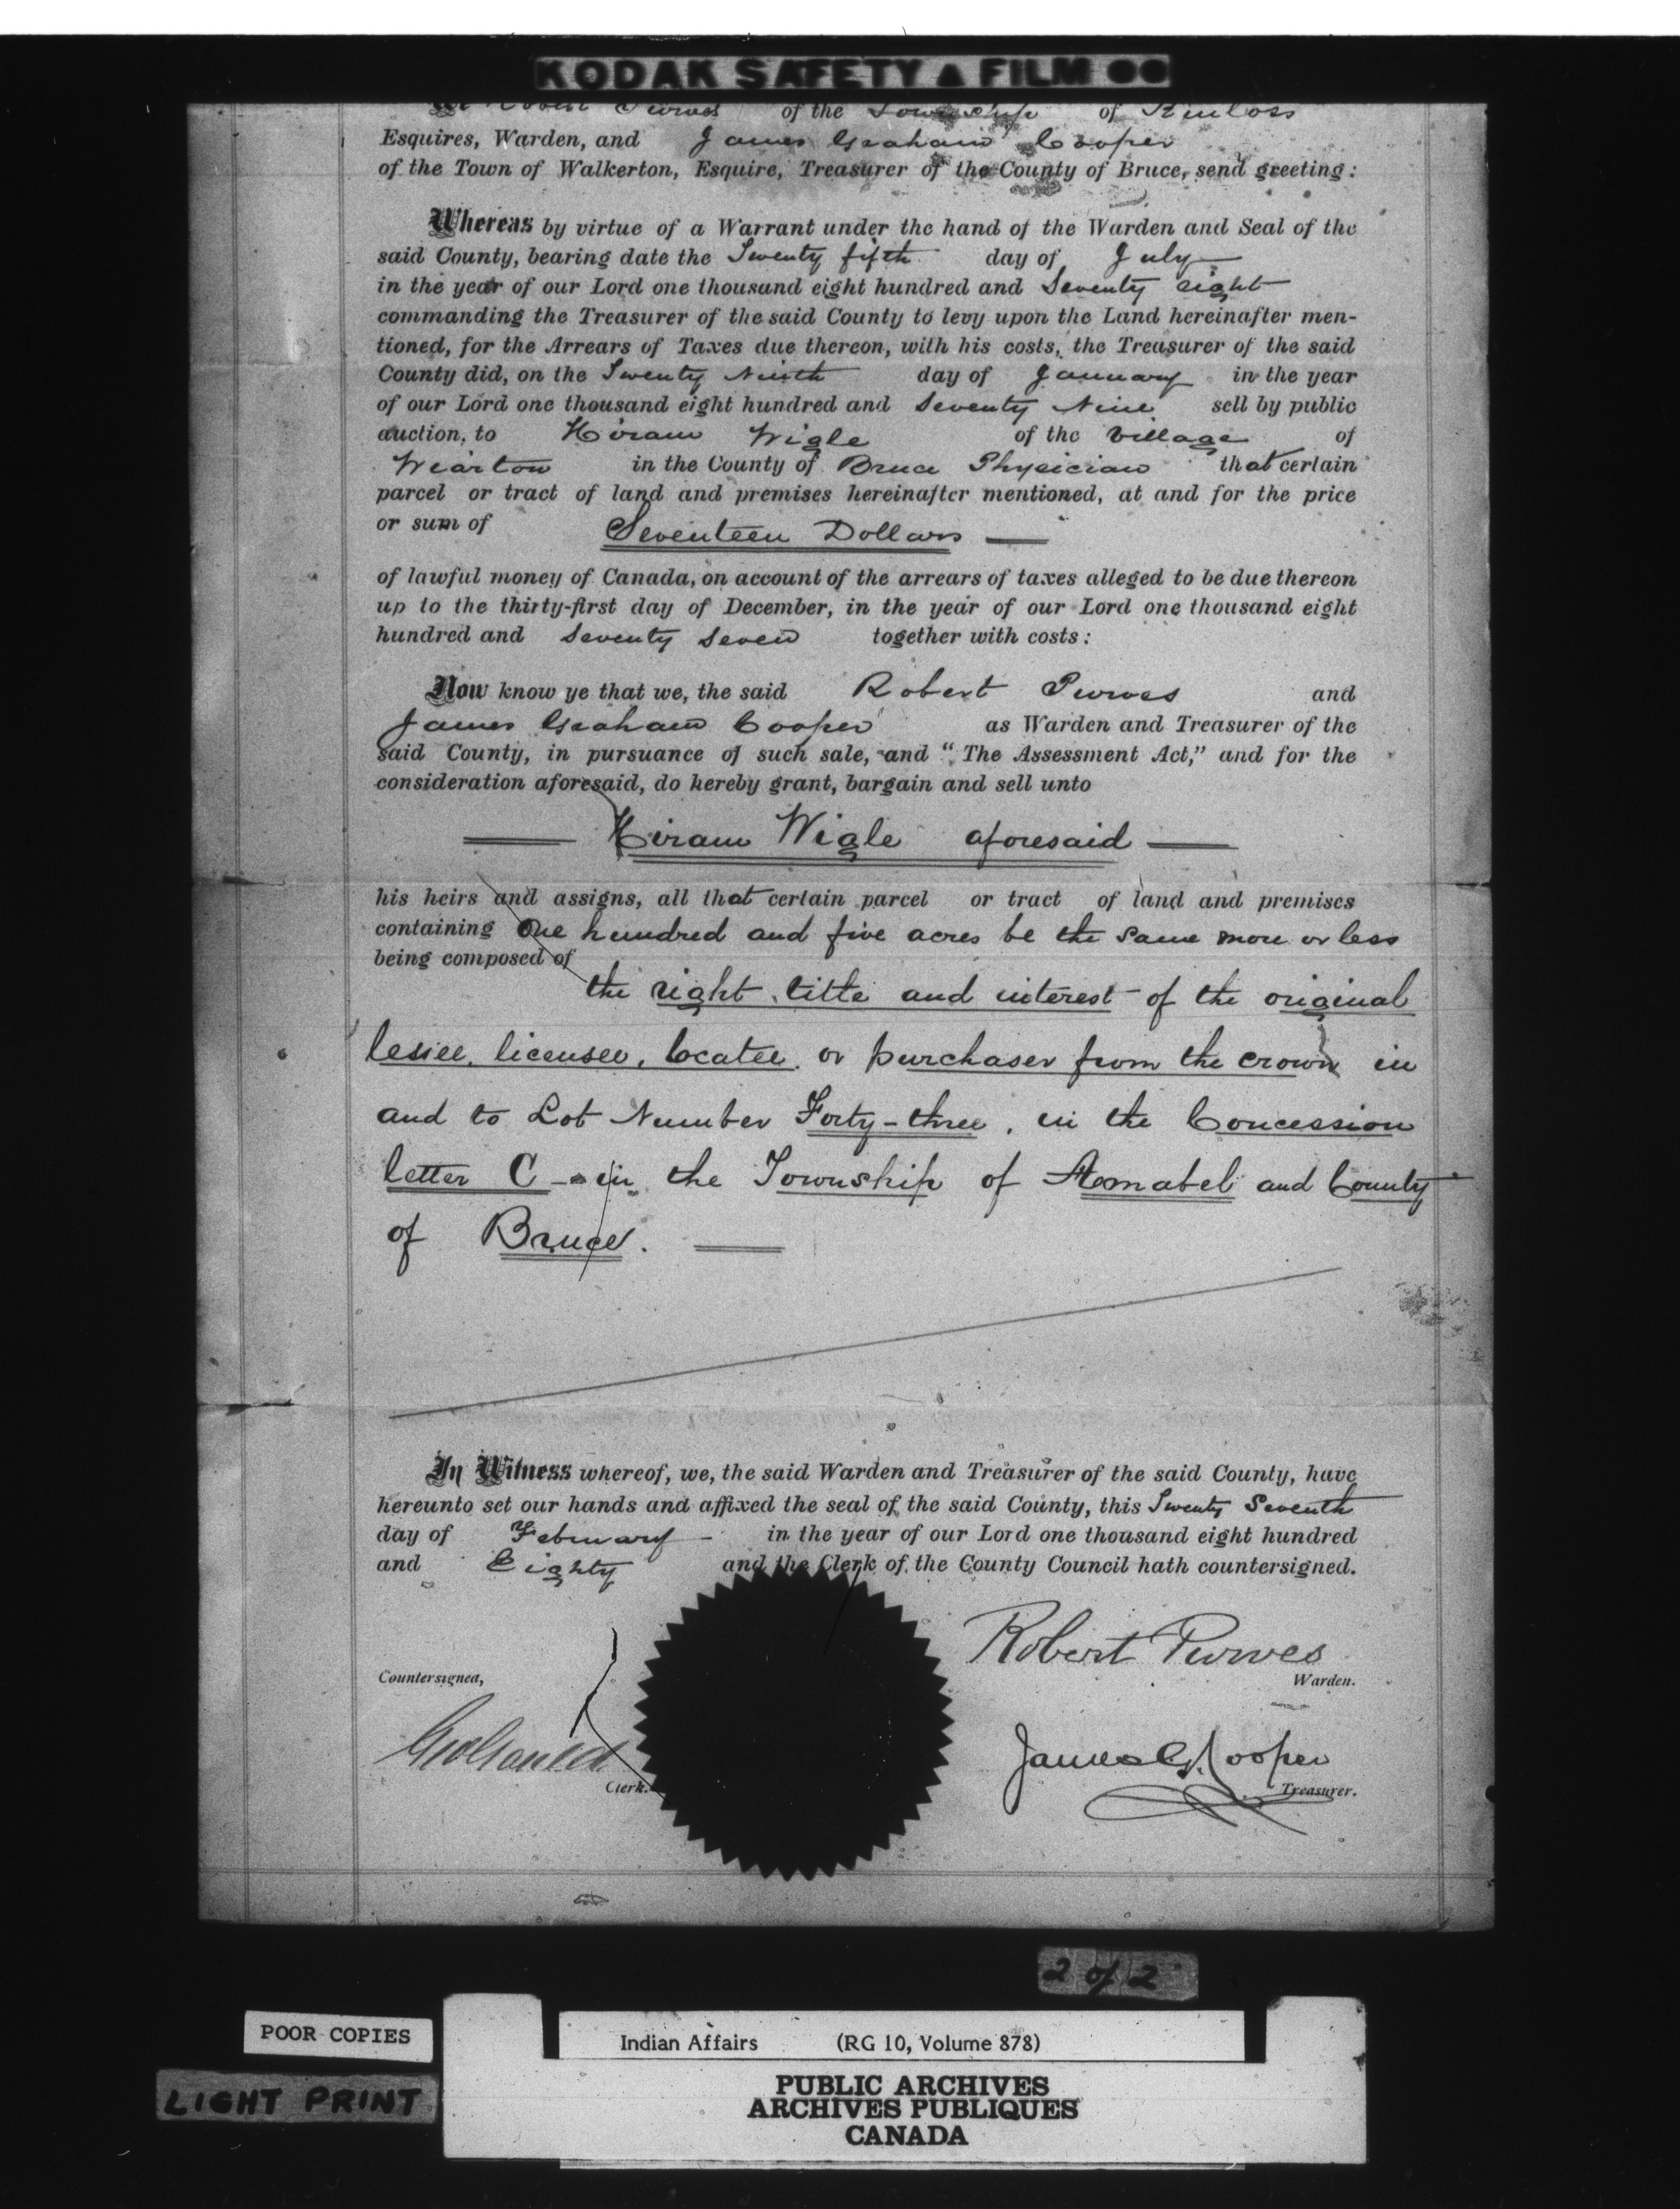 KODAK SAFETY FILM
Robert Purves of the Township of Kinloss
Esquires, Warden, and James Graham Cooper
of the Town of Walkerton, Esquire, Treasurer of the County of Bruce, send greeting:
Whereas by virtue of a Warrant under the hand of the Warden and Seal of the
said County, bearing date the Twenty fifth day of July
in the year of our Lord one thousand eight hundred and Seventy eight
commanding the Treasurer of the said County to levy upon the Land hereinafter men-
tioned, for the Arrears of Taxes due thereon, with his costs, the Treasurer of the said
County did, on the Twenty Ninth day of January in the year
of our Lord one thousand eight hundred and Seventy Nine sell by public
auction, to Hiram Wigle of the Village of
Wiarton in the County of Bruce Physician that certain
parcel or tract of land and premises hereinafter mentioned, at and for the price
or sum of Seventeen Dollars —
of lawful money of Canada, on account of the arrears of taxes alleged to be due thereon
up to the thirty-first day of December, in the year of our Lord one thousand eight
hundred and Seventy Seven together with costs:
Now know ye that we, the said Robert Purves and
James Graham Cooper as Warden and Treasurer of the
said County, in pursuance of such sale, and "The Assessment Act," and for the
consideration aforesaid, do hereby grant, bargain and sell unto
— Hiram Wigle aforesaid —
his heirs and assigns, all that certain parcel or tract of land and premises
containing One hundred and five acres be the same more or less
being composed of
the right, title and interest of the original
lessee, licensee, locatee or purchaser from the crown in
and to Lot Number Forty-three, in the Concession
letter C - in the Township of Amabel and County
of Bruce. —
In Witness whereof, we, the said Warden and Treasurer of the said County, have
hereunto set our hands and affixed the seal of the said County, this Twenty Seventh
day of February - in the year of our Lord one thousand eight hundred
and Eighty and the Clerk of the County Council hath countersigned.
Robert Purves
Countersigned, Warden.
James G. Cooper
Clerk. Treasurer.
2 of 2
POOR COPIES
Indian Affairs (RG 10, Volume 878)
LIGHT PRINT
PUBLIC ARCHIVES
ARCHIVES PUBLIQUES
CANADA